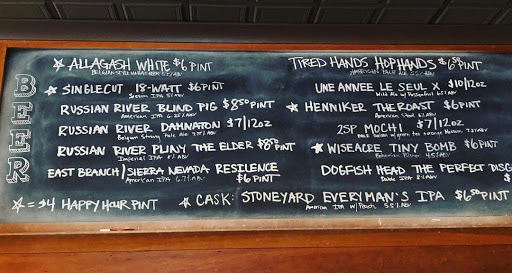 BEER
☆ ALLAGASH WHITE $6 PINT
BELGIAN STYLE WHEAT BEER 5.2% ABV
☆ SINGLECUT 18-WATT $6 PINT
Session IPA 5% ABV
RUSSIAN RIVER BLIND PIG $8.50 PINT
American IPA 6.25% ABV
RUSSIAN RIVER DAMNATION $7/12oz
Belgian Strong Pale Ale
RUSSIAN RIVER PLINY THE ELDER $8.50 PINT
Imperial IPA 8% ABV
EAST BRANCH/SIERRA NEVADA RESILENCE
American IPA 6.7% ABV $6 PINT
☆ = $4 HAPPY HOUR PINT
TIRED HANDS HOPHANDS $6.50 PINT
AMERICAN PALE ALE
UNE ANNEE LE SEUL X $10/12oz
Wild Ale w/
☆ HENNIKER THE ROAST $6 PINT
American Stout
2SP MOCHI $7/12
w/ green tea
☆ WISEACRE TINY BOMB $6 PINT
Bohemian Pilsner 4.5% ABV
DOGFISH HEAD THE PERFECT DISG
☆ CASK: STONEYARD EVERYMAN'S IPA $6.50 PINT
American IPA w/ Peach 5.5% ABV